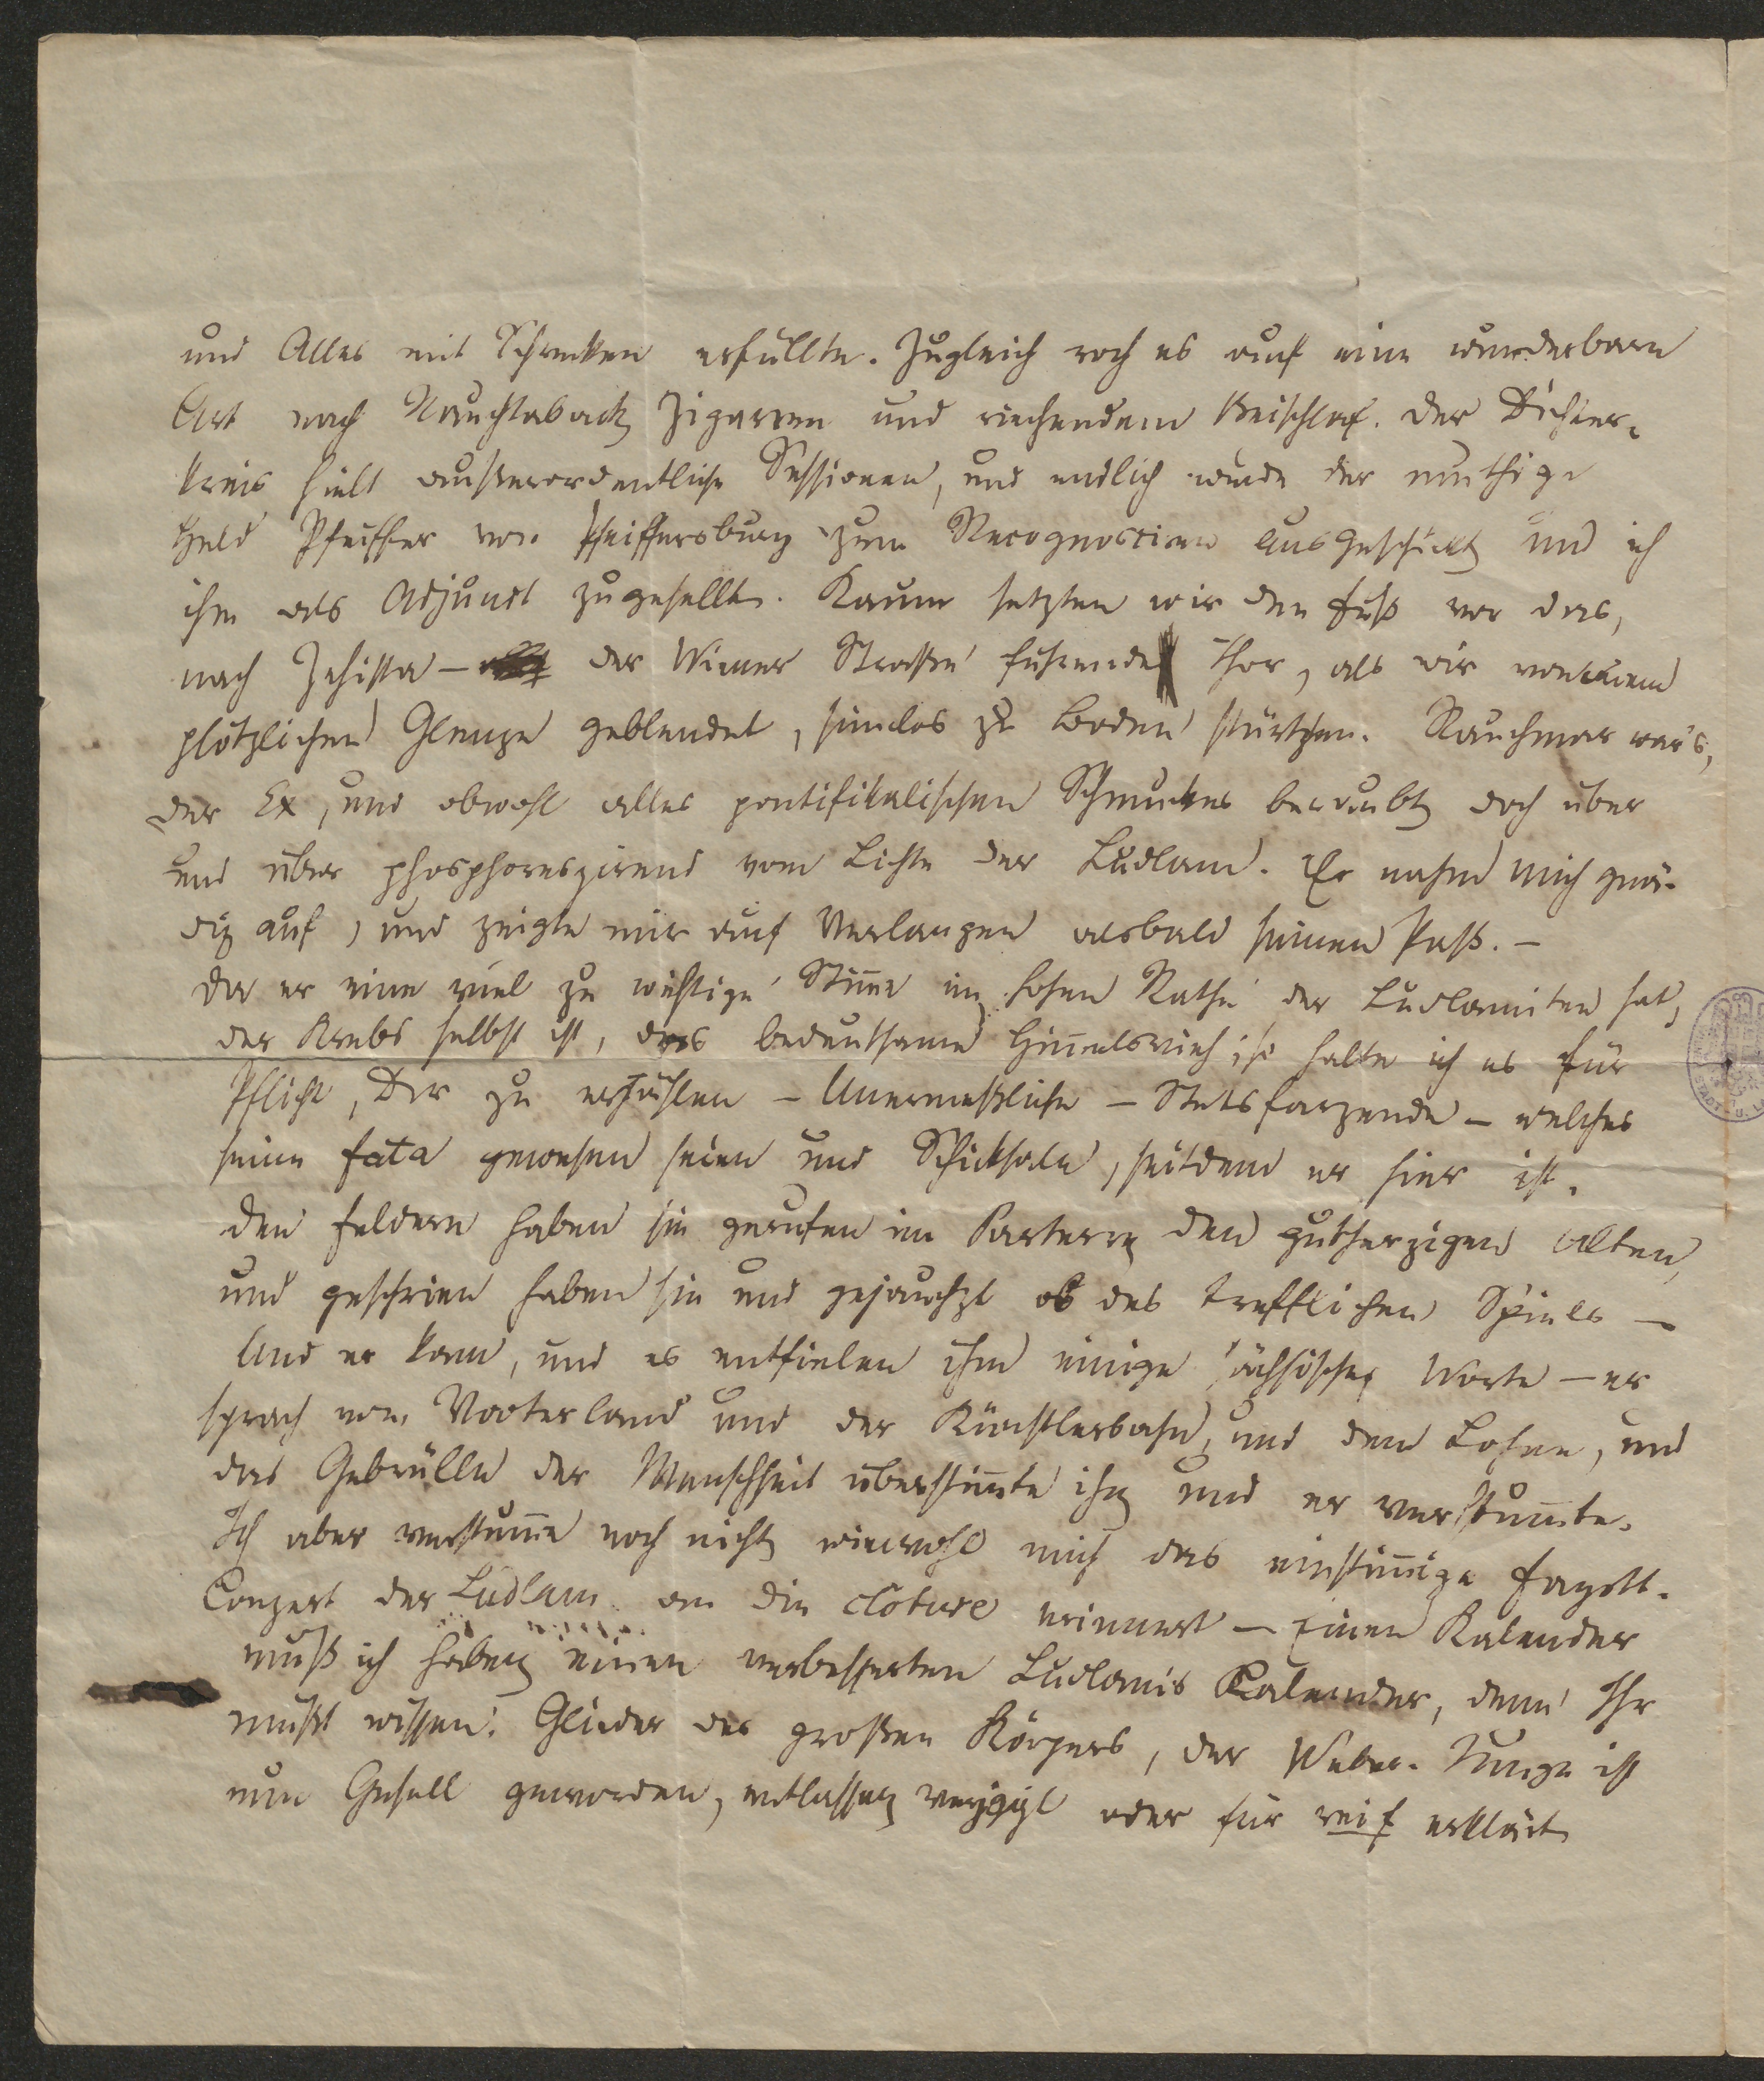 und Alles mit Schrecken erfüllte. Zugleich roch es auf eine wunderbare
Art nach Rauchtaback, Zigarren und riechendem Beischlaf. Der Dichter-
kreis hielt außerordentliche Sessionen, und endlich wurde der muthige
Held Pfeiffer von Pfeiffersburg zum Recognosciren ausgeschickt und ich
ihm als Adjunct zugesellt. Kaum setzten wir den Fuß vor das,
nach Zehista – der Wiener Straße führende Thor, als wir von einem
plötzlichen Glanze geblendet, sinnlos zu Boden stürtzten. Rauchmar war's,
der Ex, und obwohl alles pontifikalischen Schmuckes beraubt, doch über
und über phosphoreszirend vom Lichte der Ludlam. Er nahm mich gnä-
dig auf, und zeigte mir auf Verlangen alsbald seinen Paß. –
Da er eine viel zu wichtige Stimme im hohen Rathe der Ludlamiten hat,
der Krebs selbst ist, das bedeutsame Himmelsvieh, so halte ich es für
Pflicht, Dir zu erzählen – Unermeßliche – Stetsfarzende – welches
seine fata gewesen seien und Schicksale, seitdem er hier ist.
Den Feldern haben sie gerufen im Parterre, den gutherzigen Alten,
und geschrien haben sie und gejauchzt ob des trefflichen Spiels –
Und er kam, und es entfielen ihm einige sächsische Worte – er
sprach von Vooterland und der Künstlerbahn, und dem Lohne, und
das Gebrülle der Menschheit überstimmte ihn und er verstummte.
Ich aber verstumme noch nicht, wiewohl mich das einstimmige Fagott-
Conzert der Ludlam an die clôture erinnert – Einen Kalender
muß ich haben, einen verbesserten Ludlams Calender, denn Ihr
müßt wissen, Glieder des großen Körpers, der Weber-Junge ist
nun Gesell geworden, entlassen, oder für reif erklärt